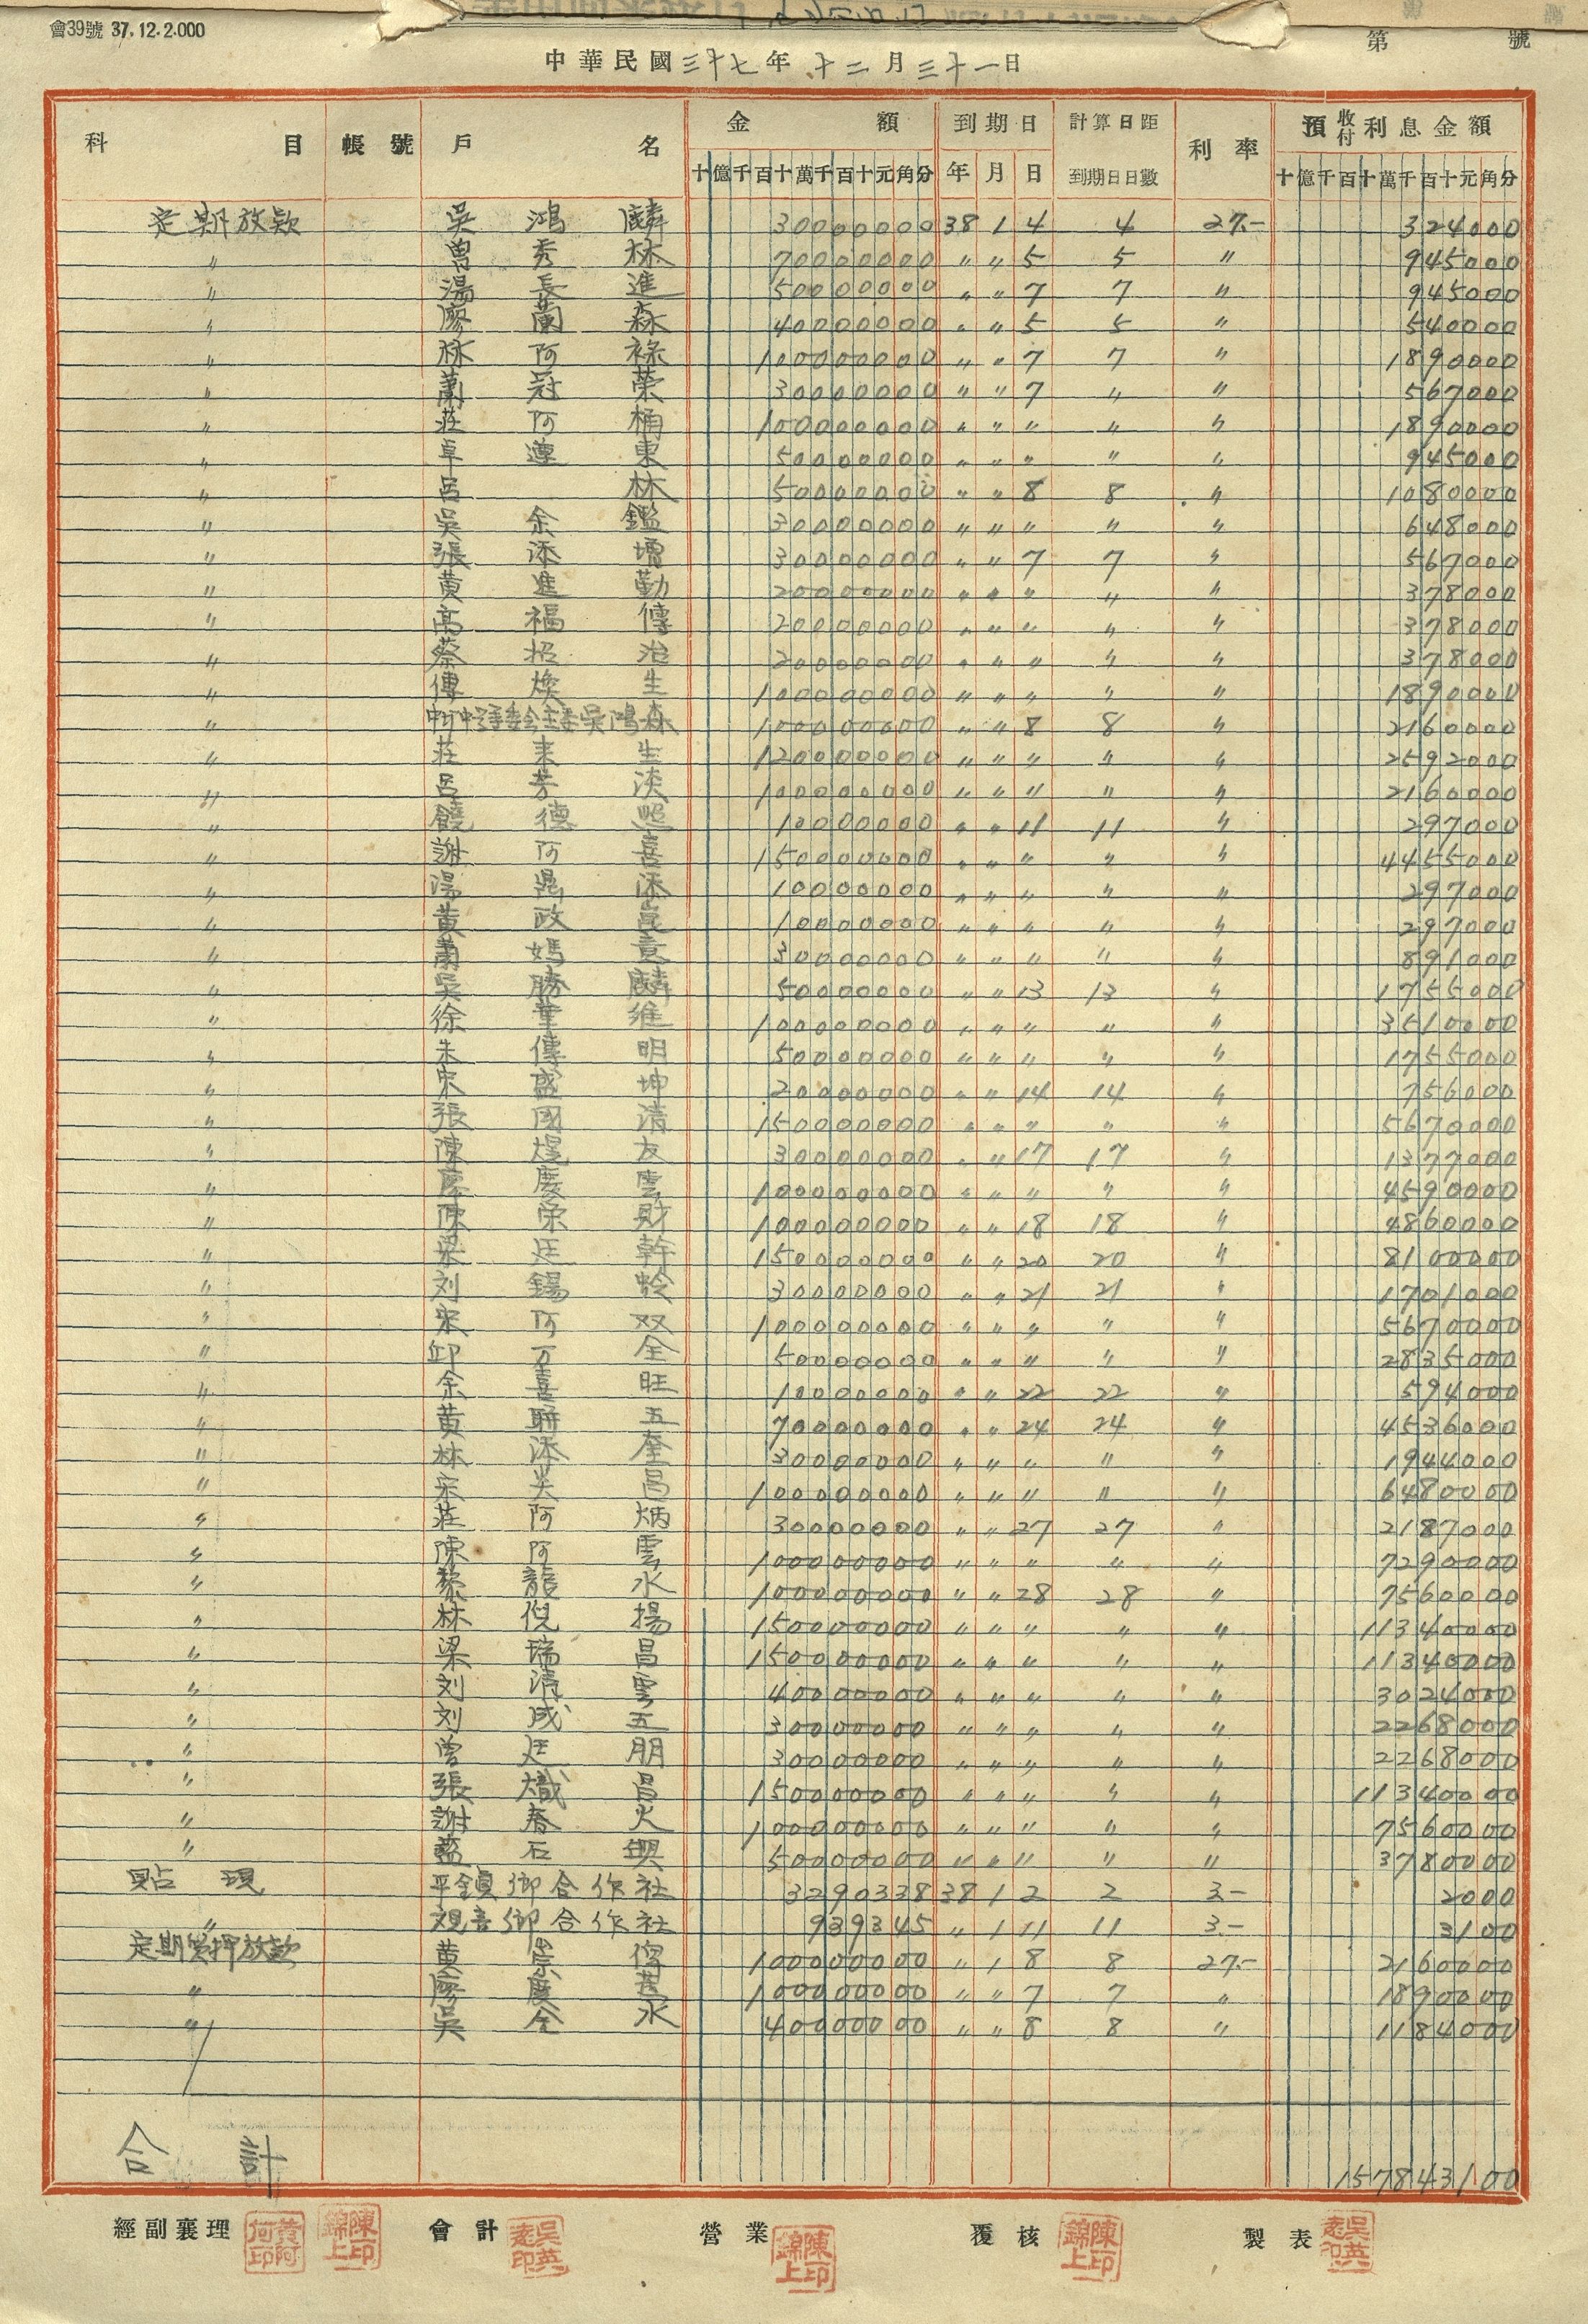 會39號 37.12.2.000
第 號
中華民國三十七年十二月三十一日
科目 帳號 戶名 金額 到期日 計算日距到期日日數 利率 預收付利息金額
十億千百十萬千百十元角分 年 月 日 十億千百十萬千百十元角分
定期放款 吳鴻麟 30000000 38 1 4 4 27.- 324000
〃 曾秀林 70000000 〃 〃 5 5 〃 945000
〃 湯長進 50000000 〃 〃 7 7 〃 945000
〃 廖蘭森 40000000 〃 〃 5 5 〃 540000
〃 林阿祿 100000000 〃 〃 7 7 〃 1890000
〃 蕭冠榮 30000000 〃 〃 7 〃 〃 567000
〃 莊阿桶 100000000 〃 〃 〃 〃 〃 1890000
〃 卓連東 50000000 〃 〃 〃 〃 〃 945000
〃 呂林 50000000 〃 〃 8 8 〃 1080000
〃 吳余鑑 30000000 〃 〃 〃 〃 〃 648000
〃 張添增 30000000 〃 〃 7 7 〃 567000
〃 黄進勤 20000000 〃 〃 〃 〃 〃 378000
〃 高福傳 20000000 〃 〃 〃 〃 〃 378000
〃 蔡招治 20000000 〃 〃 〃 〃 〃 378000
〃 傅煥生 100000000 〃 〃 〃 〃 〃 1890000
〃 吳鴻森 100000000 〃 〃 8 8 〃 2160000
〃 莊来生 120000000 〃 〃 〃 〃 〃 2592000
〃 呂芳淡 100000000 〃 〃 〃 〃 〃 2160000
〃 饒德照 10000000 〃 〃 11 11 〃 297000
〃 謝阿喜 150000000 〃 〃 〃 〃 〃 4455000
〃 湯鼎添 10000000 〃 〃 〃 〃 〃 297000
〃 黄政 10000000 〃 〃 〃 〃 〃 297000
〃 蕭媽意 30000000 〃 〃 〃 〃 〃 891000
〃 吳勝麟 50000000 〃 〃 13 13 〃 1755000
〃 徐維 100000000 〃 〃 〃 〃 〃 3510000
〃 朱傳明 50000000 〃 〃 〃 〃 〃 1755000
〃 宋盛坤 20000000 〃 〃 14 14 〃 756000
〃 張國清 150000000 〃 〃 〃 〃 〃 5670000
〃 陳煋友 30000000 〃 〃 17 17 〃 1377000
〃 廖慶雲 100000000 〃 〃 〃 〃 〃 4590000
〃 陳榮財 100000000 〃 〃 18 18 〃 4860000
〃 梁廷幹 150000000 〃 〃 20 20 〃 8100000
〃 刘錫齡 30000000 〃 〃 21 21 〃 1701000
〃 宋阿双 100000000 〃 〃 〃 〃 〃 5670000
〃 邱万全 50000000 〃 〃 〃 〃 〃 2835000
〃 余喜旺 10000000 〃 〃 22 22 〃 594000
〃 黄聯五 70000000 〃 〃 24 24 〃 4536000
〃 林添奎 30000000 〃 〃 〃 〃 〃 1944000
〃 宋昌 100000000 〃 〃 〃 〃 〃 6480000
〃 莊阿炳 30000000 〃 〃 27 27 〃 2187000
〃 陳阿雲 100000000 〃 〃 〃 〃 〃 7290000
〃 黎龍水 100000000 〃 〃 28 28 〃 7560000
〃 林倪揚 150000000 〃 〃 〃 〃 〃 11340000
〃 梁瑞昌 150000000 〃 〃 〃 〃 〃 11340000
〃 刘清雲 40000000 〃 〃 〃 〃 〃 3024000
〃 刘成五 30000000 〃 〃 〃 〃 〃 2268000
〃 曾廷朋 30000000 〃 〃 〃 〃 〃 2268000
〃 張熾昌 150000000 〃 〃 〃 〃 〃 11340000
〃 謝春火 100000000 〃 〃 〃 〃 〃 7560000
〃 藍石興 50000000 〃 〃 〃 〃 〃 3780000
貼現 平鎮鄉合作社 3290338 38 1 2 2 3.- 2000
〃 观音鄉合作社 939345 〃 1 11 11 3.- 3100
定期質押放款 黄宗 100000000 〃 1 8 8 27.- 2160000
〃 廖慶 100000000 〃 〃 7 7 〃 1890000
〃 吳全水 40000000 〃 〃 8 8 〃 1184000
合計 157843100
經副襄理 黄阿何印 陳錦上印 會計 吳英印 營業 陳錦上印 覆核 陳錦上印 製表 吳英印